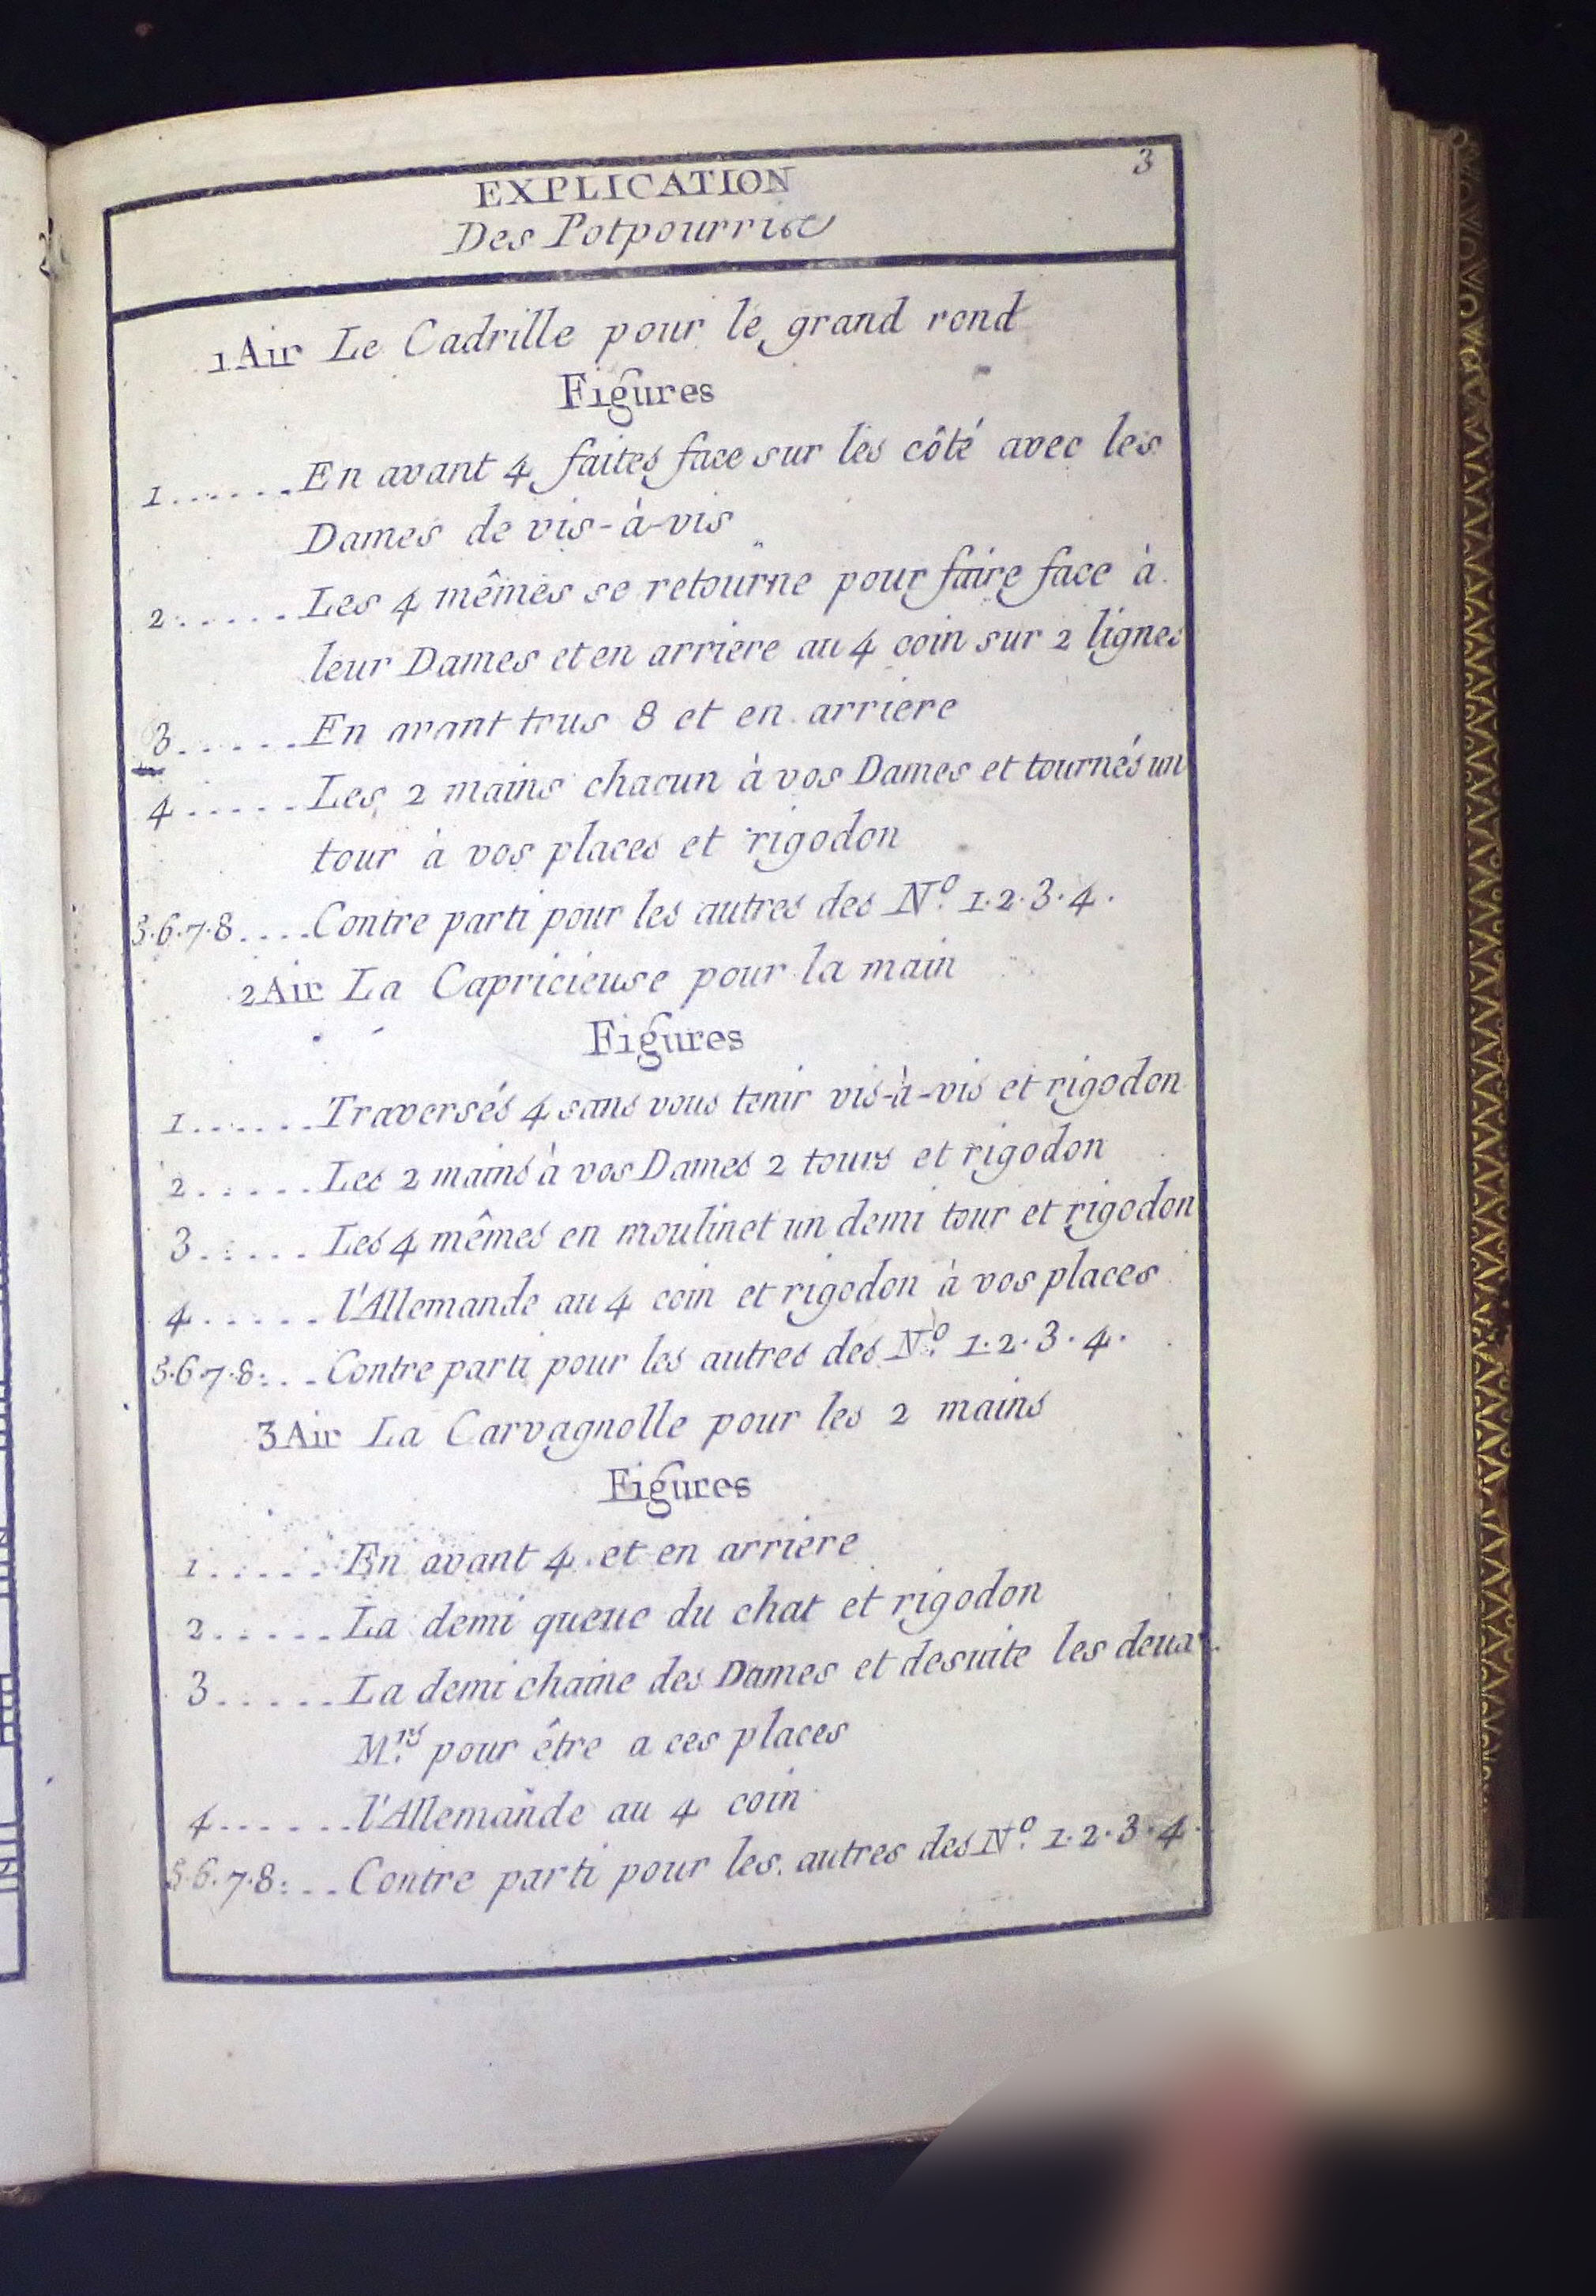 3
EXPLICATION
Des Potpourris
1 Air Le Cadrille pour le grand rond
Figures
1......En avant 4 faites face sur les côté avec les
Dames de vis-à-vis
2......Les 4 mêmes se retourne pour faire face à
leur Dames et en arriere au 4 coin sur 2 lignes
3......En avant tous 8 et en arriere
4......Les 2 mains chacun à vos Dames et tournés un
tour à vos places et rigodon
5.6.7.8....Contre parti pour les autres des No. 1.2.3.4.
2 Air La Capricieuse pour la main
Figures
1......Traversés 4 sans vous tenir vis-à-vis et rigodon
2......Les 2 mains à vos Dames 2 tours et rigodon
3......Les 4 mêmes en moulinet un demi tour et rigodon
4......l'Allemande au 4 coin et rigodon à vos places
5.6.7.8...Contre parti pour les autres des No. 1.2.3.4.
3 Air La Carvagnolle pour les 2 mains
Figures
1......En avant 4 et en arriere
2......La demi queue du chat et rigodon
3......La demi chaine des Dames et desuite les deux
Mrs. pour être a ces places
4......l'Allemande au 4 coin
5.6.7.8...Contre parti pour les autres des No. 1.2.3.4.